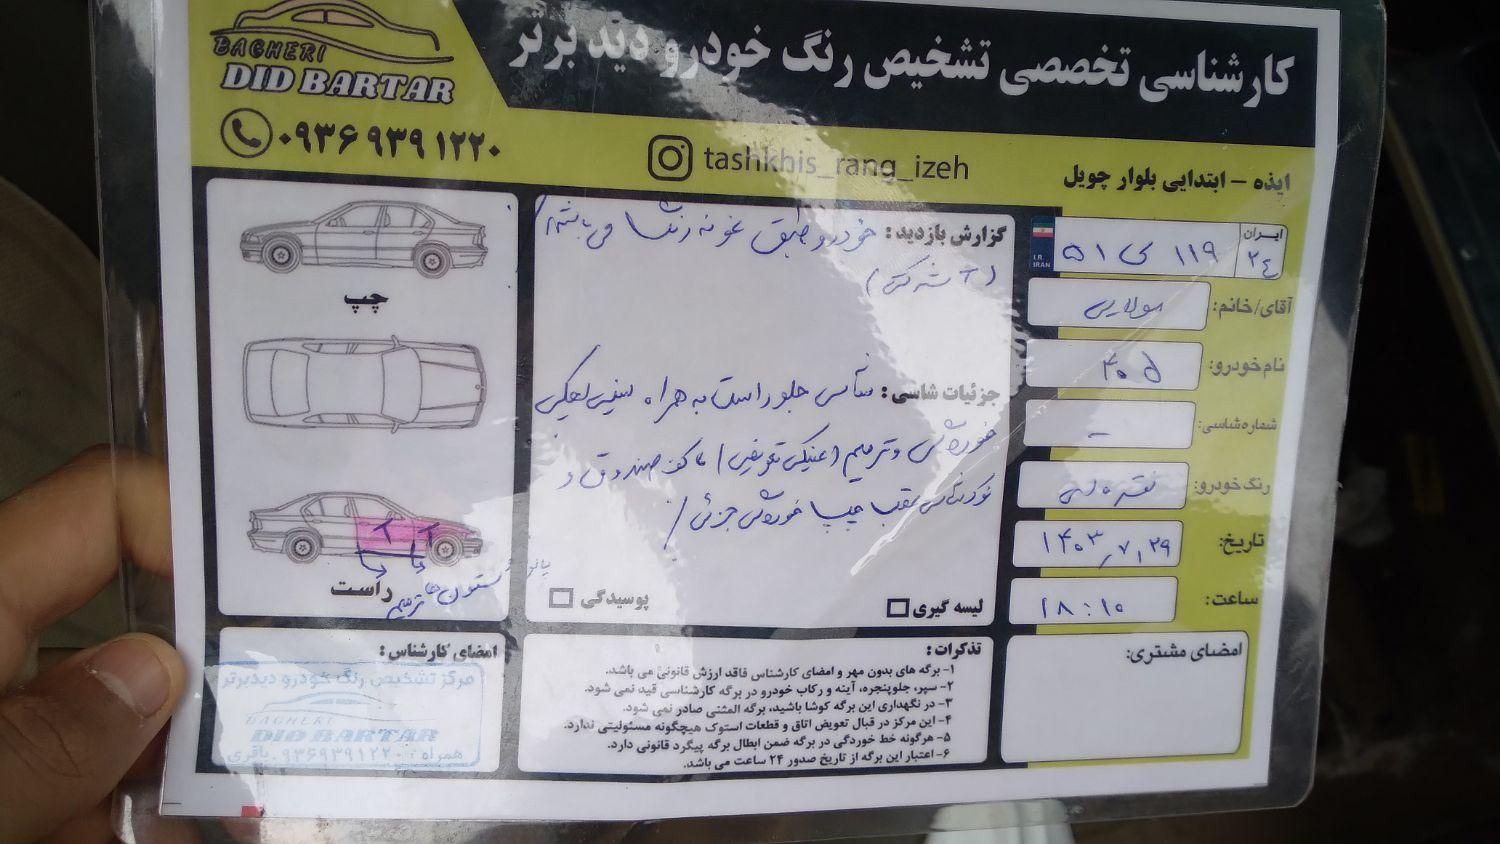 کارشناسی تخصصی تشخیص رنگ خودرو دید برتر
BAGHERI
DID BARTAR
۰۹۳۶ ۹۳۹ ۱۲۲۰
tashkhis_rang_izeh
ایذه - ابتدایی بلوار چویل
ایران
۲٤
۱۱۹ ی ۵۱
I.R.
IRAN
آقای/خانم: مولایی
نام خودرو: ۴۰۵
شماره شاسی: -
رنگ خودرو: نقره ای
تاریخ: ۱۴۰۳/۷/۲۹
ساعت: ۱۸:۱۰
امضای مشتری:
گزارش بازدید: خودرو طبق نمونه رنگ ها می باشد/
جزئیات شاسی: شاسی جلو راست به همراه سینی
و ترمیم / کف صندوق و
عقب چپ جزئی /
لیسه گیری
پوسیدگی
چپ
راست
ستون ها ترمیم
تذکرات:
۱- برگه های بدون مهر و امضای کارشناس فاقد ارزش قانونی می باشد.
۲- سپر، جلوپنجره، آینه و رکاب خودرو در برگه کارشناسی قید نمی شود.
۳- در نگهداری این برگه کوشا باشید، برگه المثنی صادر نمی شود.
۴- این مرکز در قبال تعویض اتاق و قطعات استوک هیچگونه مسئولیتی ندارد.
۵- هرگونه خط خوردگی در برگه ضمن ابطال برگه پیگرد قانونی دارد.
۶- اعتبار این برگه از تاریخ صدور ۲۴ ساعت می باشد.
امضای کارشناس:
مرکز تشخیص رنگ خودرو دیدبرتر
BAGHERI
DID BARTAR
همراه: ۰۹۳۶۹۳۹۱۲۲۰ باقری